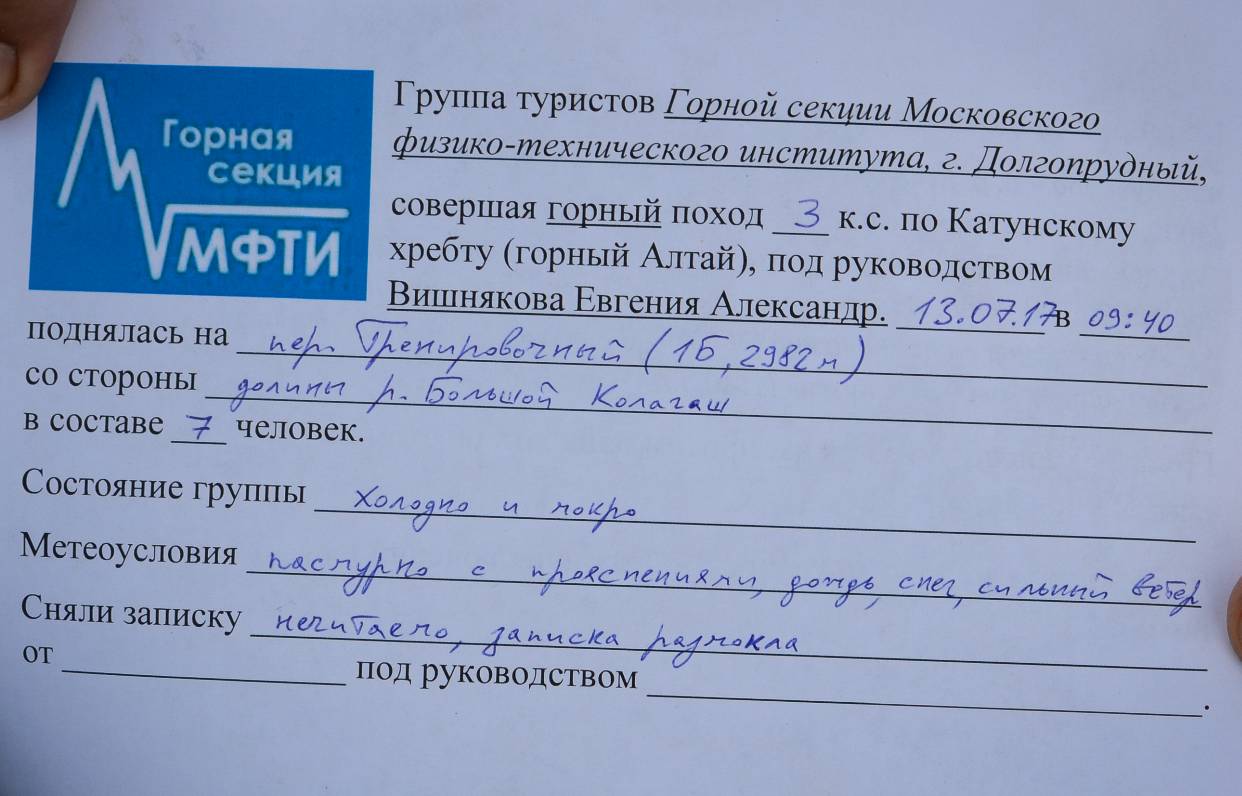 Горная
секция
МФТИ
Группа туристов Горной секции Московского
физико-технического института, г. Долгопрудный,
совершая горный поход 3 к.с. по Катунскому
хребту (горный Алтай), под руководством
Вишнякова Евгения Александр. 13.07.17 в 09:40
поднялась на пер. Тренировочный (1Б, 2982 м)
со стороны долины р. Большой Колагаш
в составе 7 человек.
Состояние группы холодно и мокро
Метеоусловия пасмурно с прояснениями, дождь, снег, сильный ветер
Сняли записку нечитаемо, записка размокла
от под руководством .